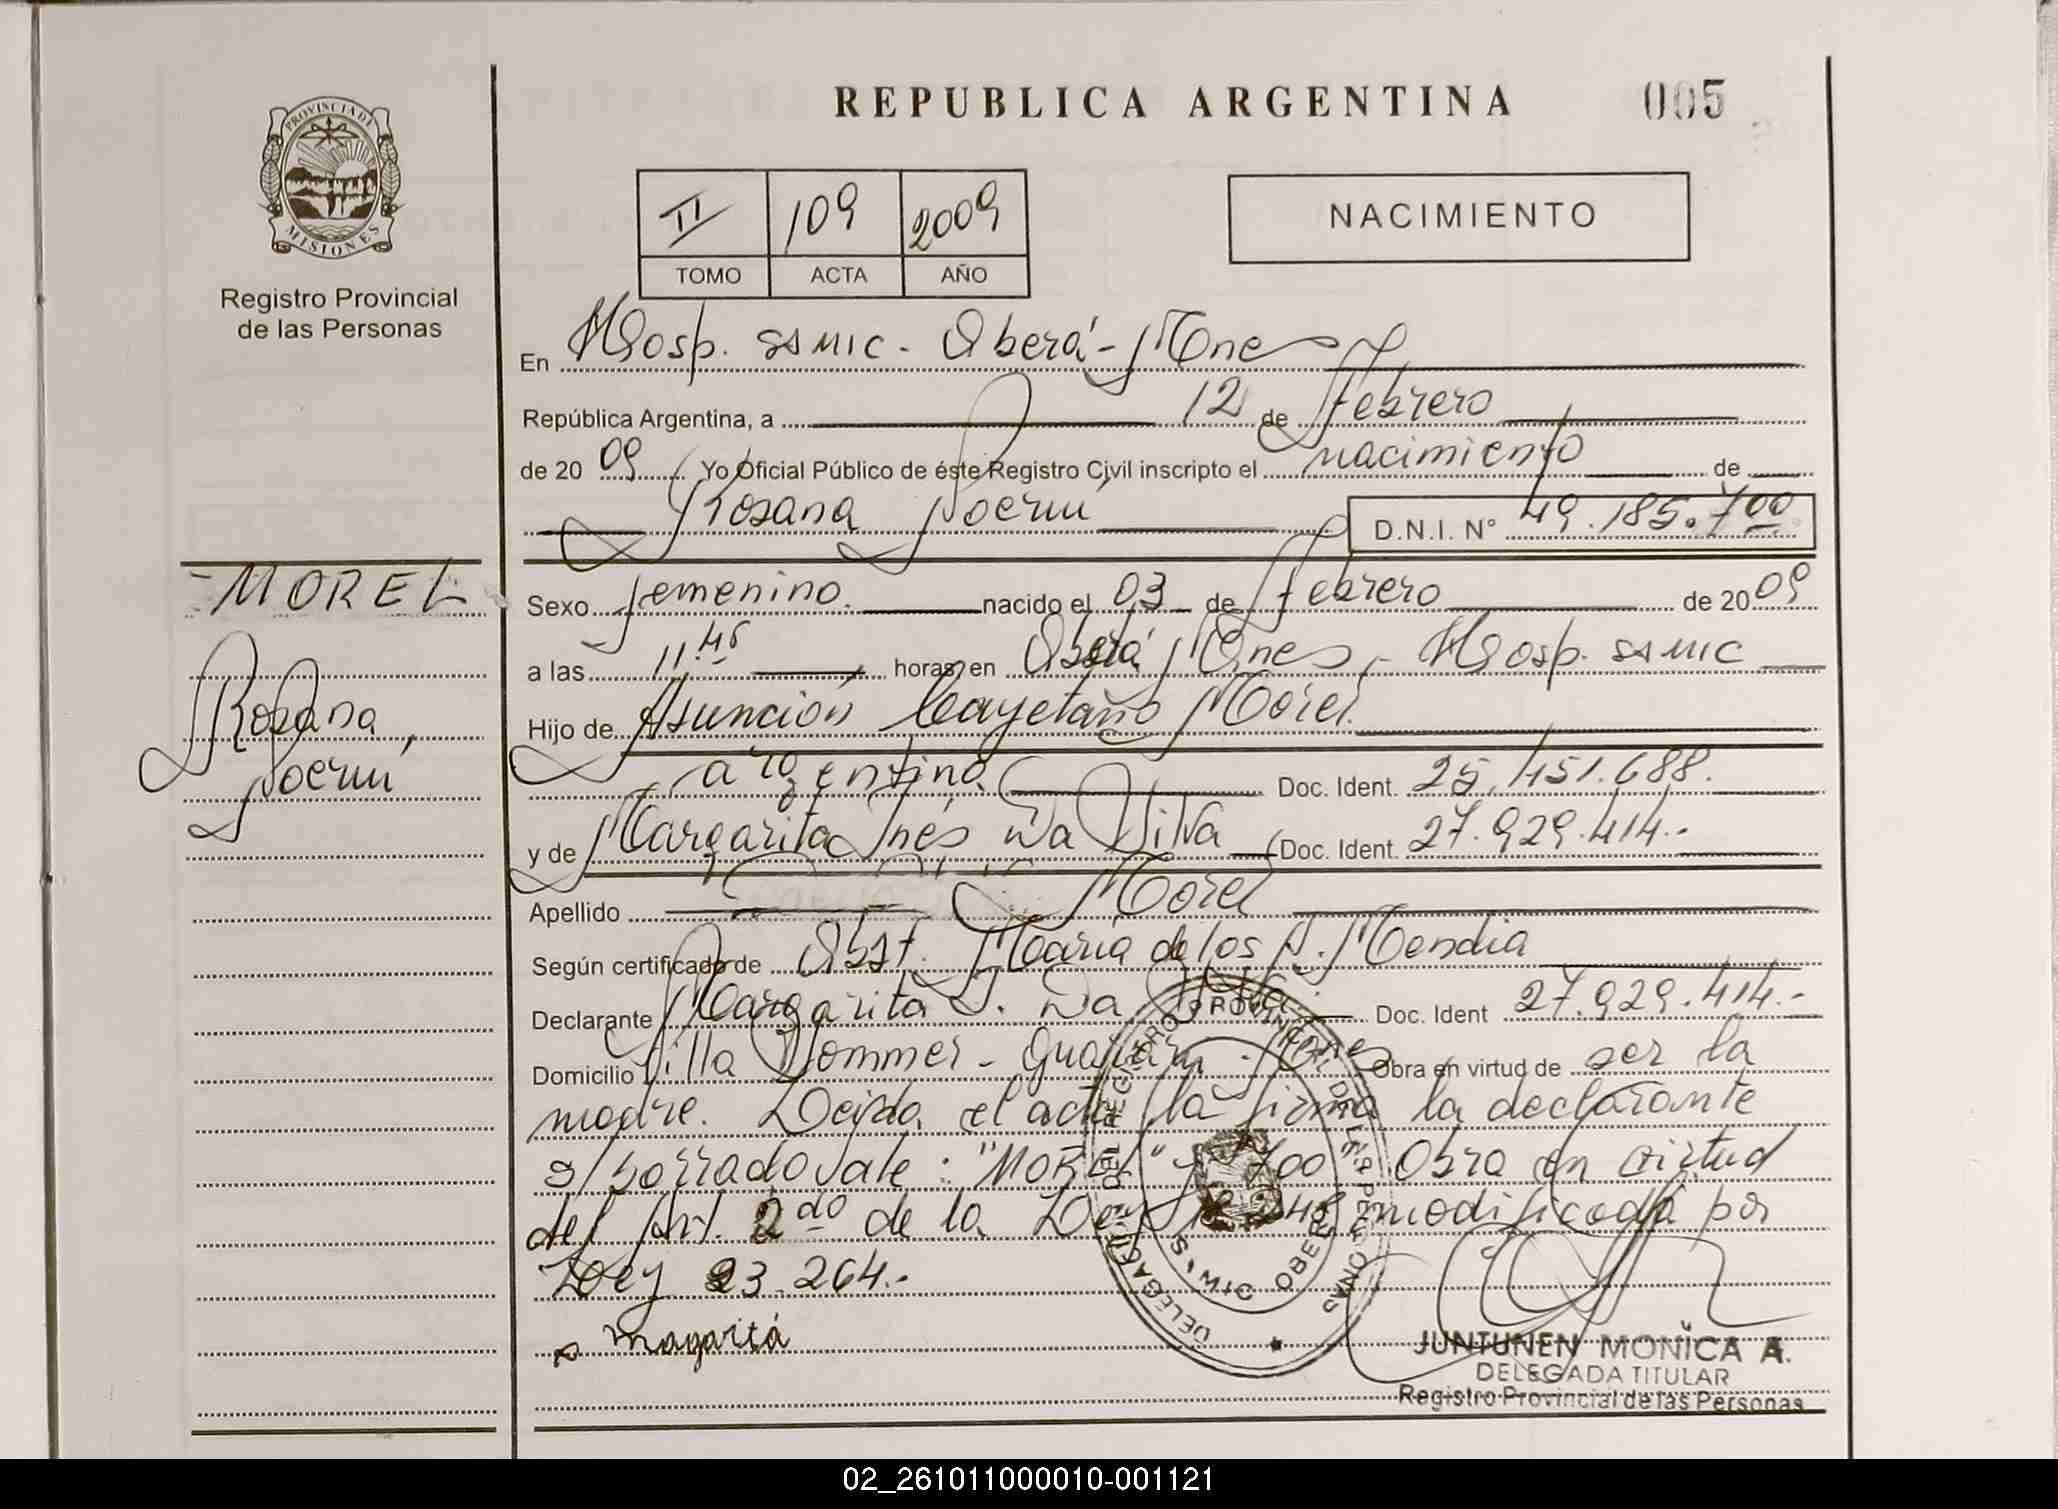 REPUBLICA ARGENTINA
005
PROVINCIA DE
MISIONES
Registro Provincial
de las Personas
II 109 2009
TOMO ACTA AÑO
NACIMIENTO
En Hosp. SAMIC - Oberá - Mnes
República Argentina, a 12 de Febrero
de 20 09 Yo Oficial Público de éste Registro Civil inscripto el nacimiento de
Rosana Noemí D.N.I. N° 49.185.700
MOREL
Rosana
Noemí
Sexo femenino. nacido el 03 de Febrero de 20 09
a las 11.45 horas en Oberá Mnes - Hosp. SAMIC
Hijo de Asunción Cayetano Morel.
argentino. Doc. Ident. 25.451.688.
y de Margarita Inés Da Silva Doc. Ident. 27.929.414.-
Apellido Morel
Según certificado de Obst. María de los A. Mendia
Declarante Margarita I. Da Silva. Doc. Ident 27.929.414.-
Domicilio Villa Bommer - Guaraní - Mnes Obra en virtud de ser la
madre. Leída el acta la firma la declarante
s/borrado vale: "MOREL" y 700 Obra en virtud
del Art. 2do de la Ley 18.248 modificada por
Ley 23.264.-
Magaritá
REGISTRO PROVINCIAL DE LAS PERSONAS
DELEGACION
SAMIC OBERA
JUNTUNEN MONICA A.
DELEGADA TITULAR
Registro Provincial de las Personas
02_261011000010-001121